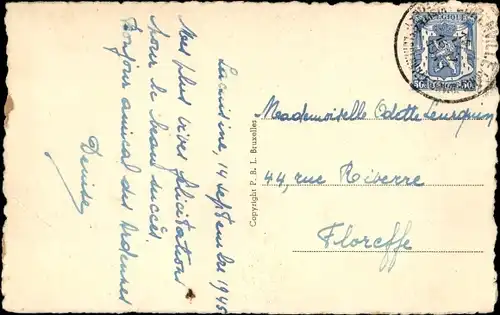 Lacuisine, 14 septembre 1945
Mes plus vives félicitations
pour le beau succès.
Bonjour amical des Ardennes
Denise
Copyright P. B. I. Bruxelles
BELGIQUE
Mademoiselle Odette
44, rue Riverre
Floreffe